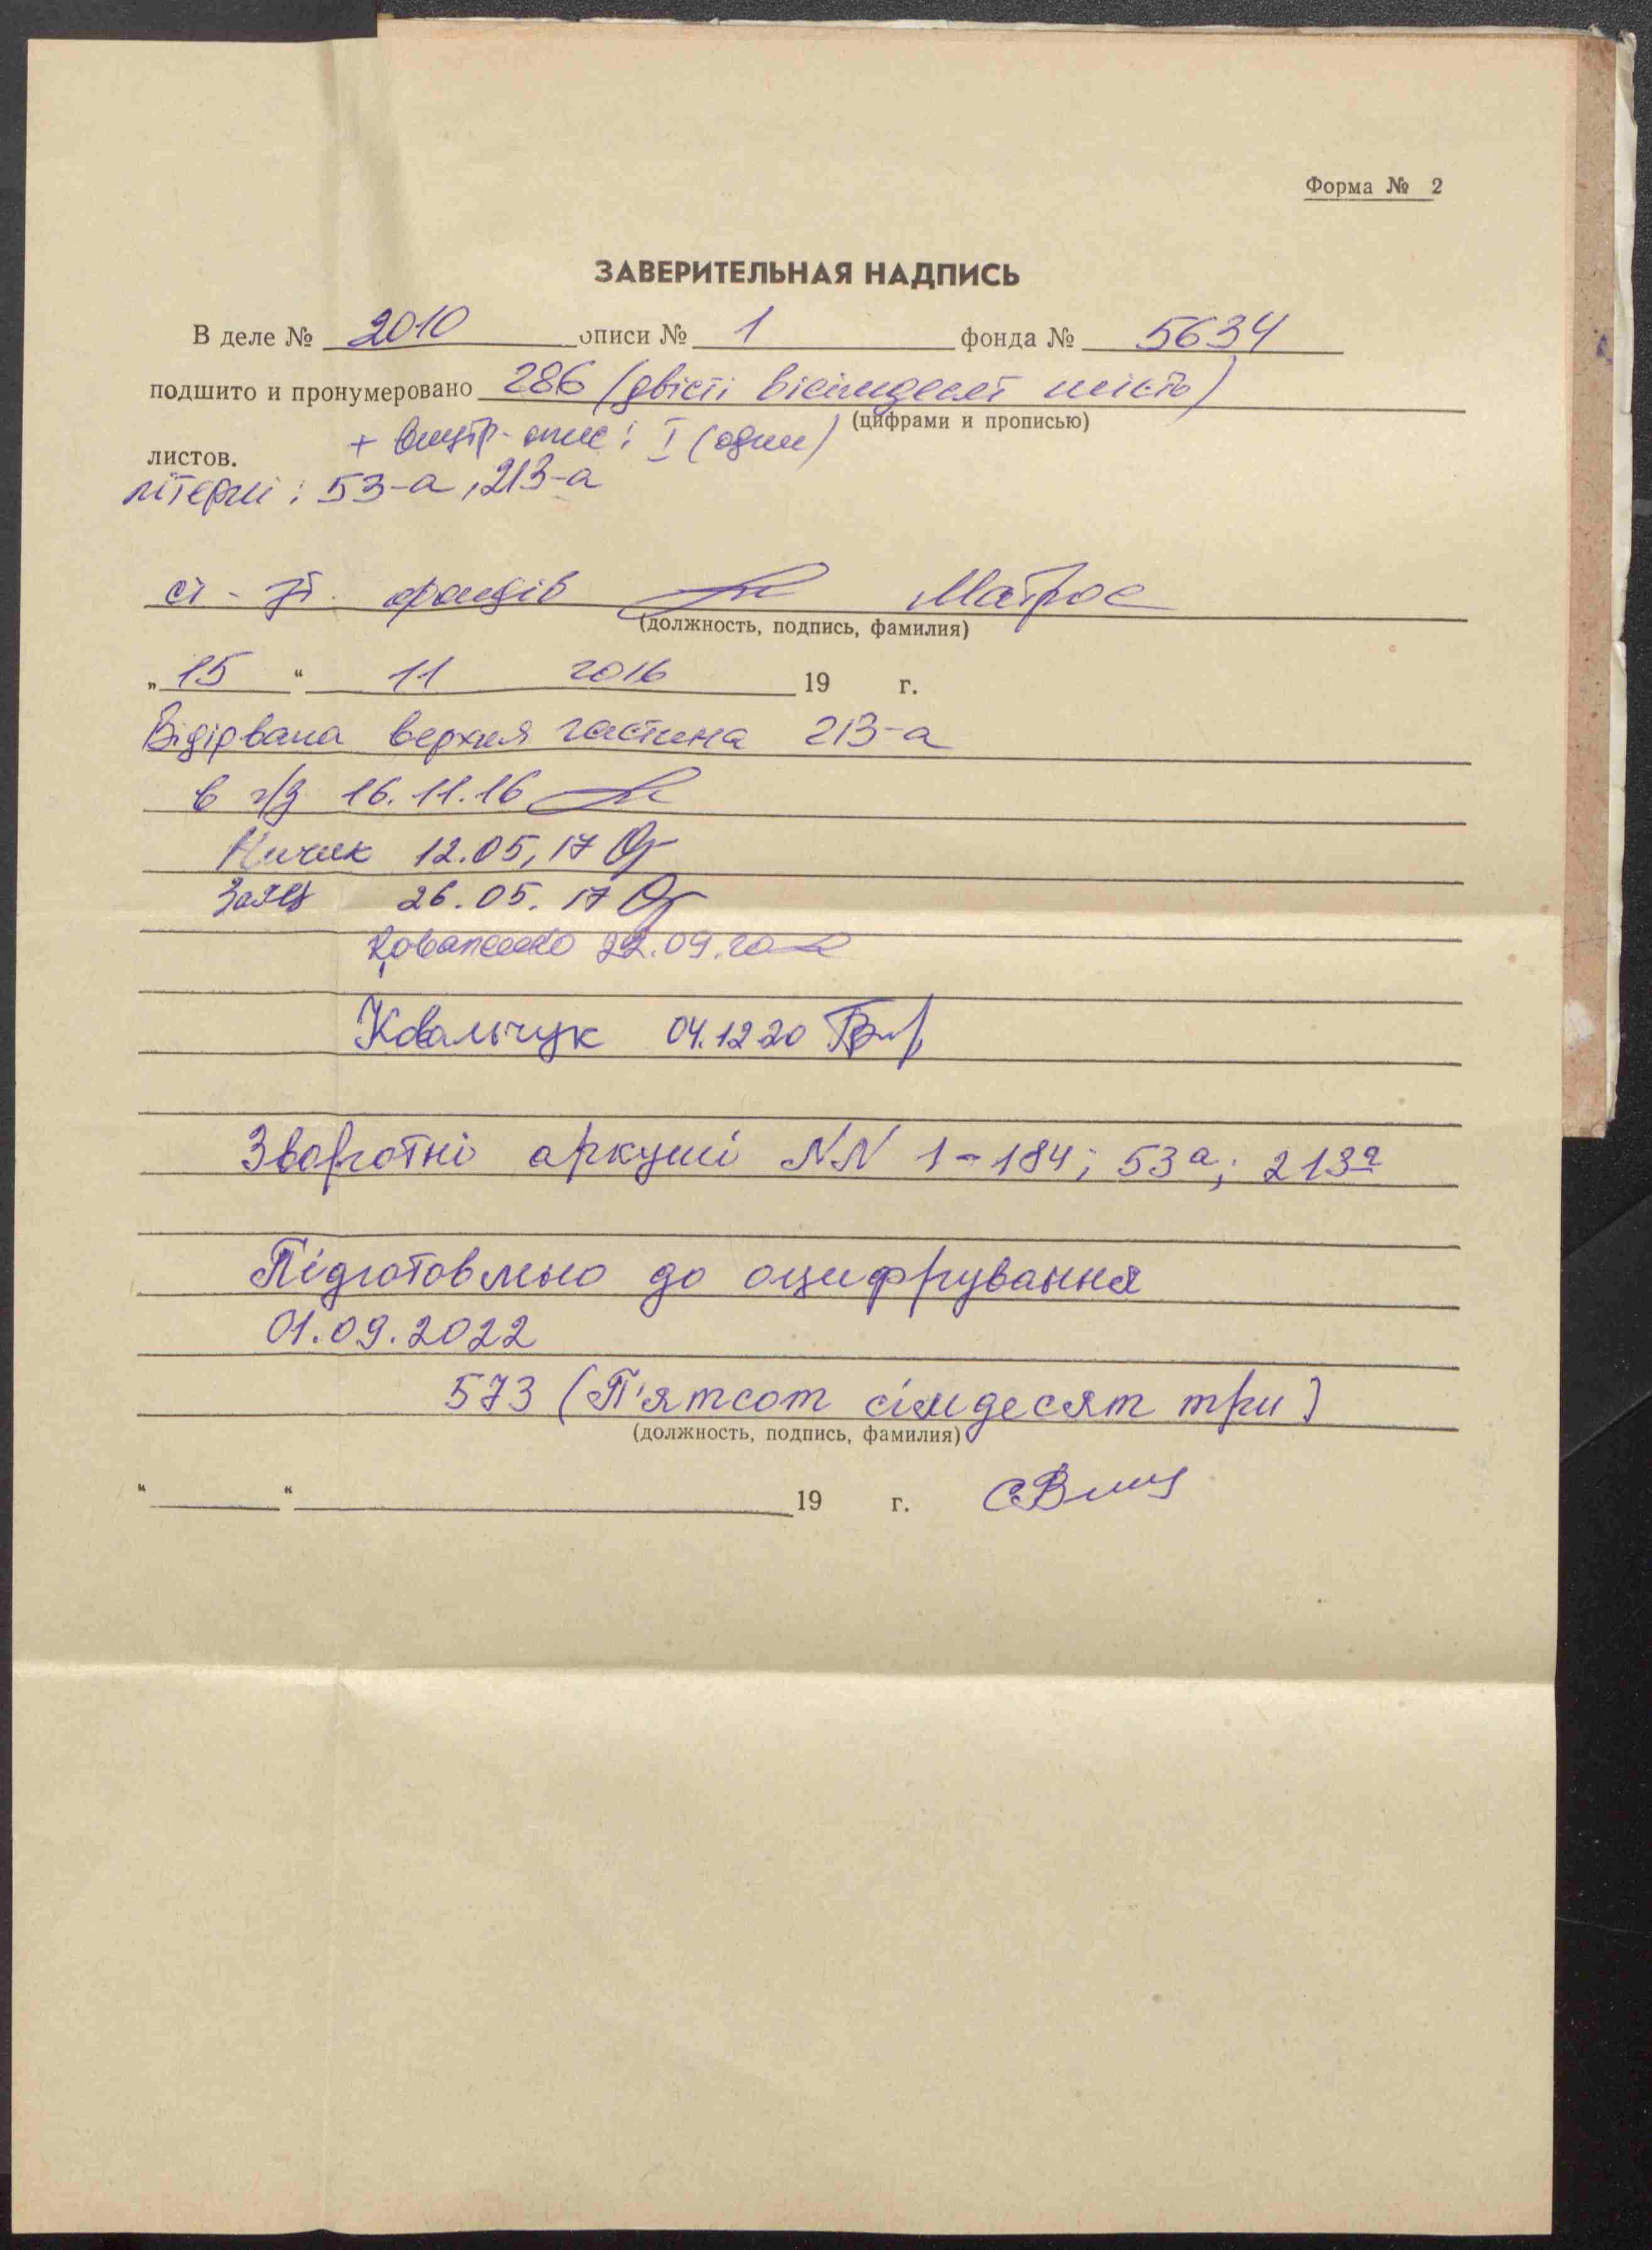 Форма № 2
ЗАВЕРИТЕЛЬНАЯ НАДПИСЬ
В деле № 2010 описи № 1 фонда № 5634
подшито и пронумеровано 286 (двісті вісімдесят шість)
(цифрами и прописью)
+ внутр-опис: I (один)
листов.
літерні: 53-а, 213-а
фондів Матрос
(должность, подпись, фамилия)
„ 15 “ 11 2016 19 г.
Відірвана верхня частина 213-а
в ч/з 16.11.16
12.05.17
Заяц 26.05.17
22.09.20
Ковальчук 04.12.20
Зворотні аркуші NN 1-184; 53а; 213а
Підготовлено до оцифрування
01.09.2022
573 (П'ятсот сімдесят три)
(должность, подпись, фамилия)
“ “ 19 г.